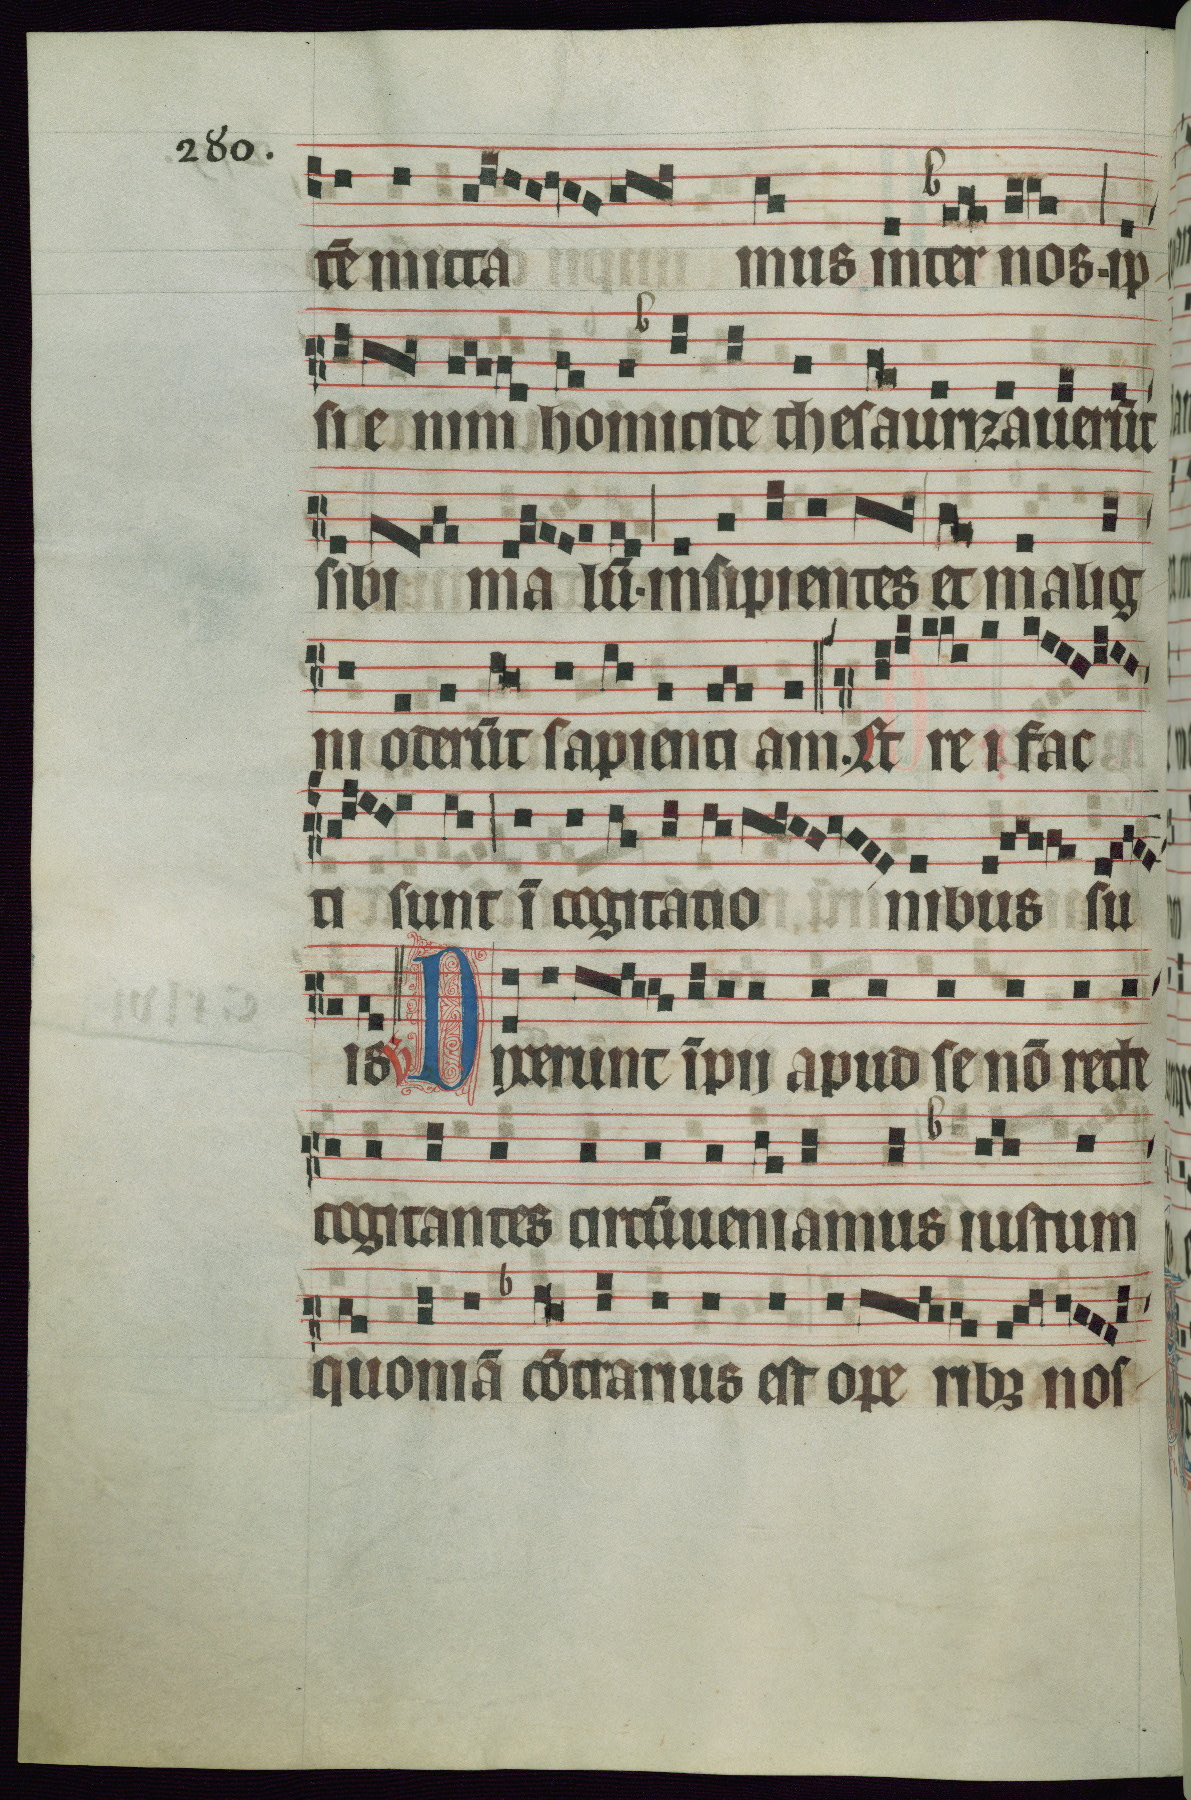 280.
tē mitta mus inter nos·ip
si e nim homicide thesaurizauerūt
sibi ma lū·insipientes et malig
ni oderūt sapienti am. Et re i fac
ti sunt ī cogitatio nibus su
is ℣ Dixerunt īpij apud se nō recte
cogitantes circūueniamus iustum
quoniā cōtrarius est ope ribꝫ nos